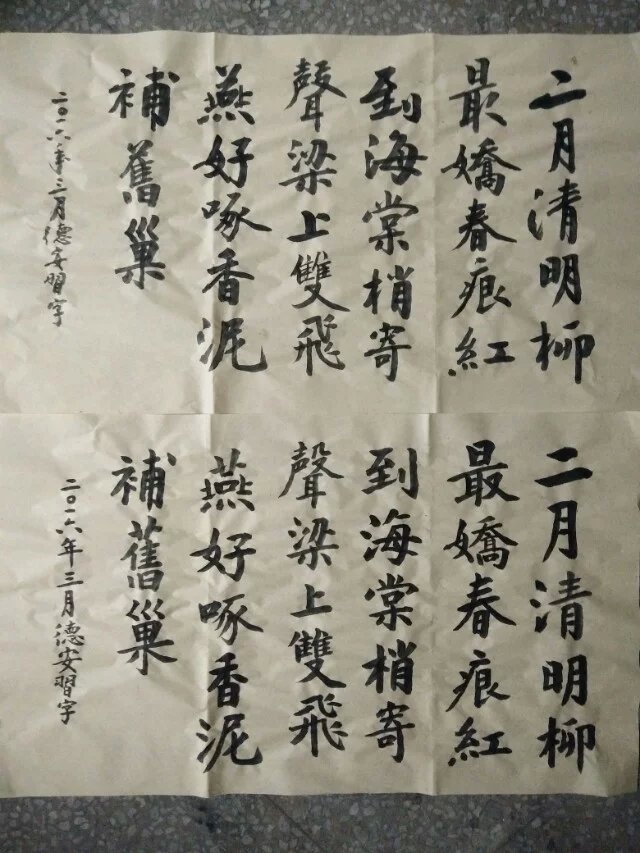 二月清明柳
最嬌春痕紅
到海棠梢寄
聲梁上雙飛
燕好啄香泥
補舊巢
二〇一六年三月德安習字
二月清明柳
最嬌春痕紅
到海棠梢寄
聲梁上雙飛
燕好啄香泥
補舊巢
二〇一六年三月德安習字